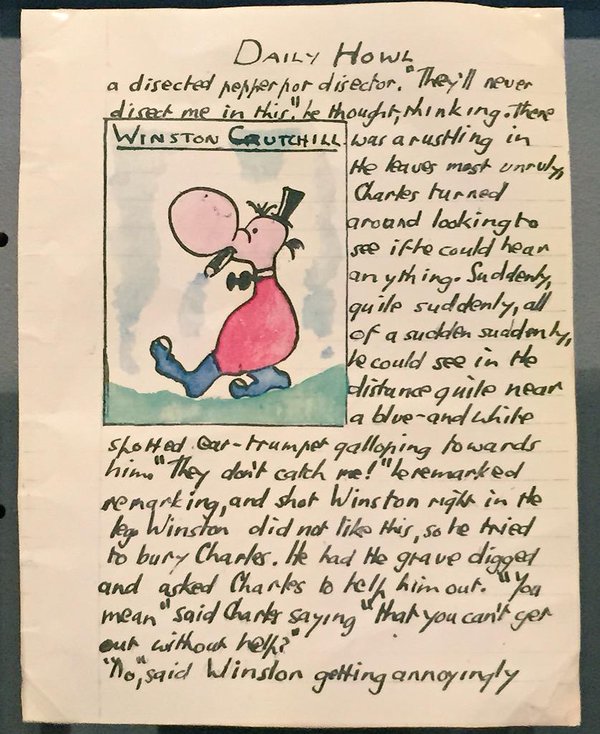 DAILY HOWL
a disected pepperpot disector. "They'll never
disect me in this", he thought, thinking. There
WINSTON CRUTCHILL
was a rustling in
the leaves most unruly,
Charles turned
around looking to
see if he could hear
anything. Suddenly,
quite suddenly, all
of a sudden suddenly,
he could see in the
distance quite near
a blue-and white
spotted ear-trumpet galloping towards
him. "They don't catch me!" he remarked
remarking, and shot Winston right in the
leg. Winston did not like this, so he tried
to bury Charles. He had the grave digged
and asked Charles to help him out. "You
mean" said Charles saying "that you can't get
out without help?"
"No," said Winston getting annoyingly